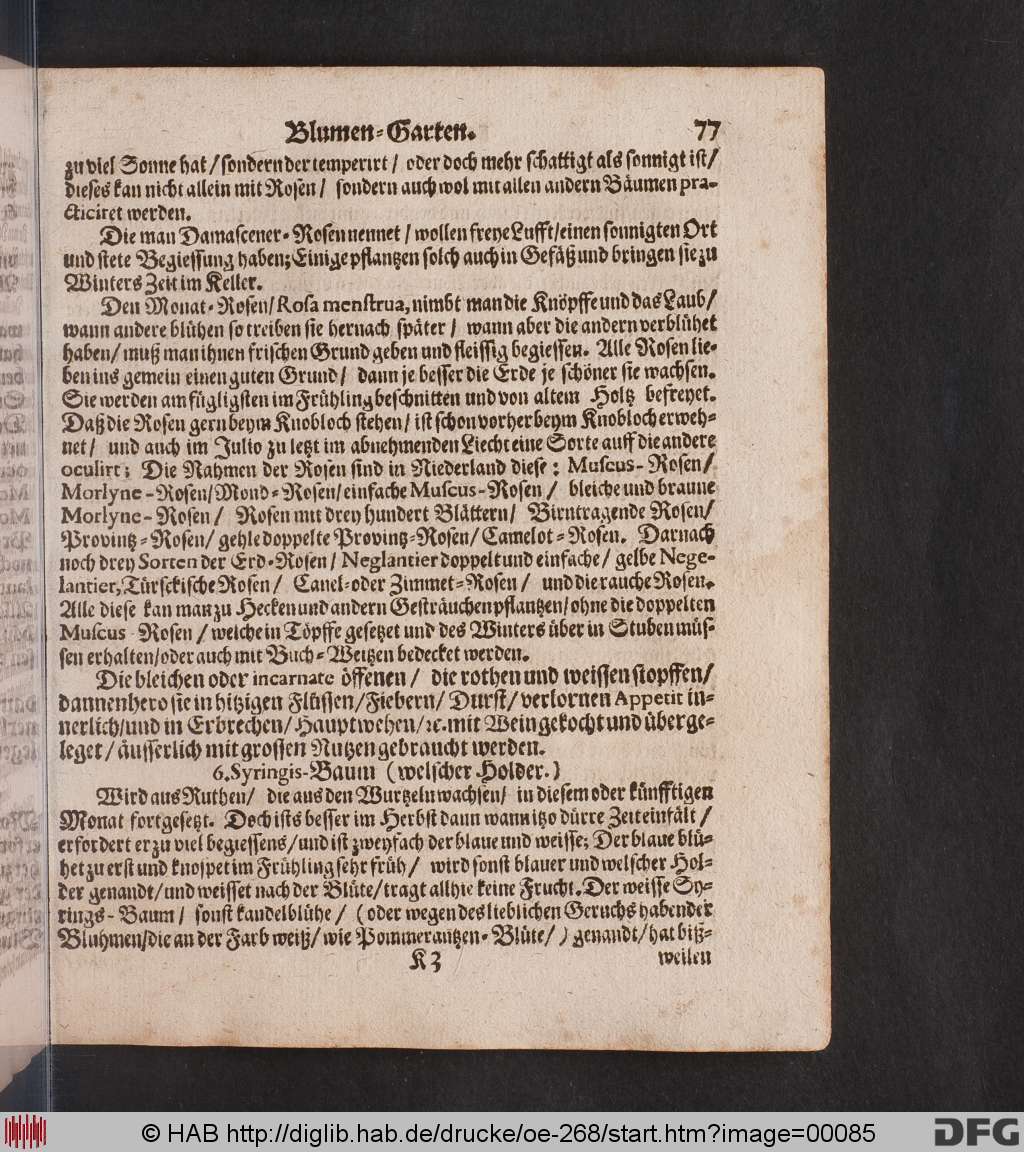 Blumen-Garten. 77
zu viel Sonne hat/sondern der temperirt/ oder doch mehr schattigt als sonnigt ist/
dieses kan nicht allein mit Rosen/ sondern auch wol mit allen andern Bäumen pra-
cticiret werden.
Die man Damascener-Rosen nennet/wollen freye Lufft/einen sonnigten Ort
und stete Begiessung haben; Einige pflantzen solch auch in Gefäß und bringen sie zu
Winters Zeit im Keller.
Den Monat-Rosen/Rosa menstrua, nimbt man die Knöpffe und das Laub/
wann andere blühen so treiben sie hernach später/ wann aber die andern verblühet
haben/muß man ihnen frischen Grund geben und fleissig begiessen. Alle Rosen lie-
ben ins gemein einen guten Grund/ dann je besser die Erde je schöner sie wachsen.
Sie werden am fügligsten im Frühling beschnitten und von altem Holtz befreyet.
Daß die Rosen gern beym Knobloch stehen/ist schon vorher beym Knobloch erweh-
net/ und auch im Julio zu letzt im abnehmenden Liecht eine Sorte auff die andere
oculirt; Die Nahmen der Rosen sind in Niederland diese: Muscus-Rosen/
Morlyne-Rosen/Mond-Rosen/einfache Muscus-Rosen/ bleiche und braune
Morlyne-Rosen/ Rosen mit drey hundert Blättern/ Birntragende Rosen/
Provintz-Rosen/gehle doppelte Provintz-Rosen/Camelot-Rosen. Darnach
noch drey Sorten der Erd-Rosen/Neglantier doppelt und einfache/gelbe Nege-
lantier, Türsckische Rosen/ Canel-oder Zimmet-Rosen/ und die rauche Rosen.
Alle diese kan man zu Hecken und andern Gesträuchen pflantzen/ohne die doppelten
Muscus Rosen/welche in Töpffe gesetzet und des Winters über in Stuben müs-
sen erhalten/oder auch mit Buch-Weitzen bedecket werden.
Die bleichen oder incarnate öffenen/ die rothen und weissen stopffen/
dannenhero sie in hitzigen Flüssen/Fiebern/Durst/verlornen Appetit in-
nerlich/und in Erbrechen/Hauptwehen/ꝛc. mit Wein gekocht und überge-
leget/äusserlich mit grossen Nutzen gebraucht werden.
6. Syringis-Baum (welscher Holder.)
Wird aus Ruthen/ die aus den Wurtzeln wachsen/ in diesem oder künfftigen
Monat fortgesetzt. Doch ists besser im Herbst dann wann itzo dürre Zeit einfält/
erfordert er zu viel begiessens/und ist zweyfach der blaue und weisse; Der blaue blü-
het zu erst und knospet im Frühling sehr früh/ wird sonst blauer und welscher Hol-
der genandt/und weisset nach der Blüte/tragt allhie keine Frucht. Der weisse Sy-
rings-Baum/ sonst kandelblühe/ (oder wegen des lieblichen Geruchs habender
Bluhmen/die an der Farb weiß/wie Pommerantzen-Blüte/) genandt/hat biß-
K 3 weilen
© HAB http://diglib.hab.de/drucke/oe-268/start.htm?image=00085
DFG